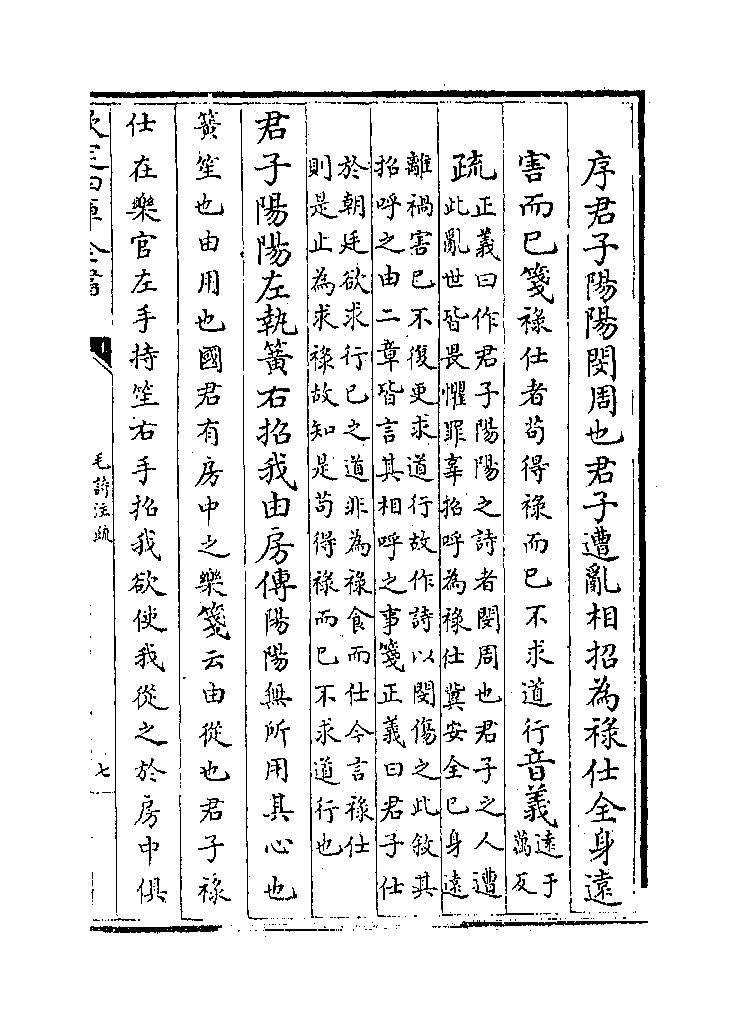 序君子陽陽閔周也君子遭亂相招為禄仕全身遠
害而已箋禄仕者苟得禄而已不求道行音義遠于
萬反
疏正義曰作君子陽陽之詩者閔周也君子之人遭
此亂世皆畏懼罪辜招呼為禄仕冀安全已身遠
離禍害已不復更求道行故作詩以閔傷之此敘其
招呼之由二章皆言其相呼之事箋正義曰君子仕
於朝廷欲求行已之道非為禄食而仕今言禄仕
則是止為求禄故知是苟得禄而已不求道行也
君子陽陽左執簧右招我由房傳陽陽無所用其心也
簧笙也由用也國君有房中之樂箋云由從也君子禄
仕在樂官左手持笙右手招我欲使我從之於房中俱
欽定四庫全書
毛詩注疏
七